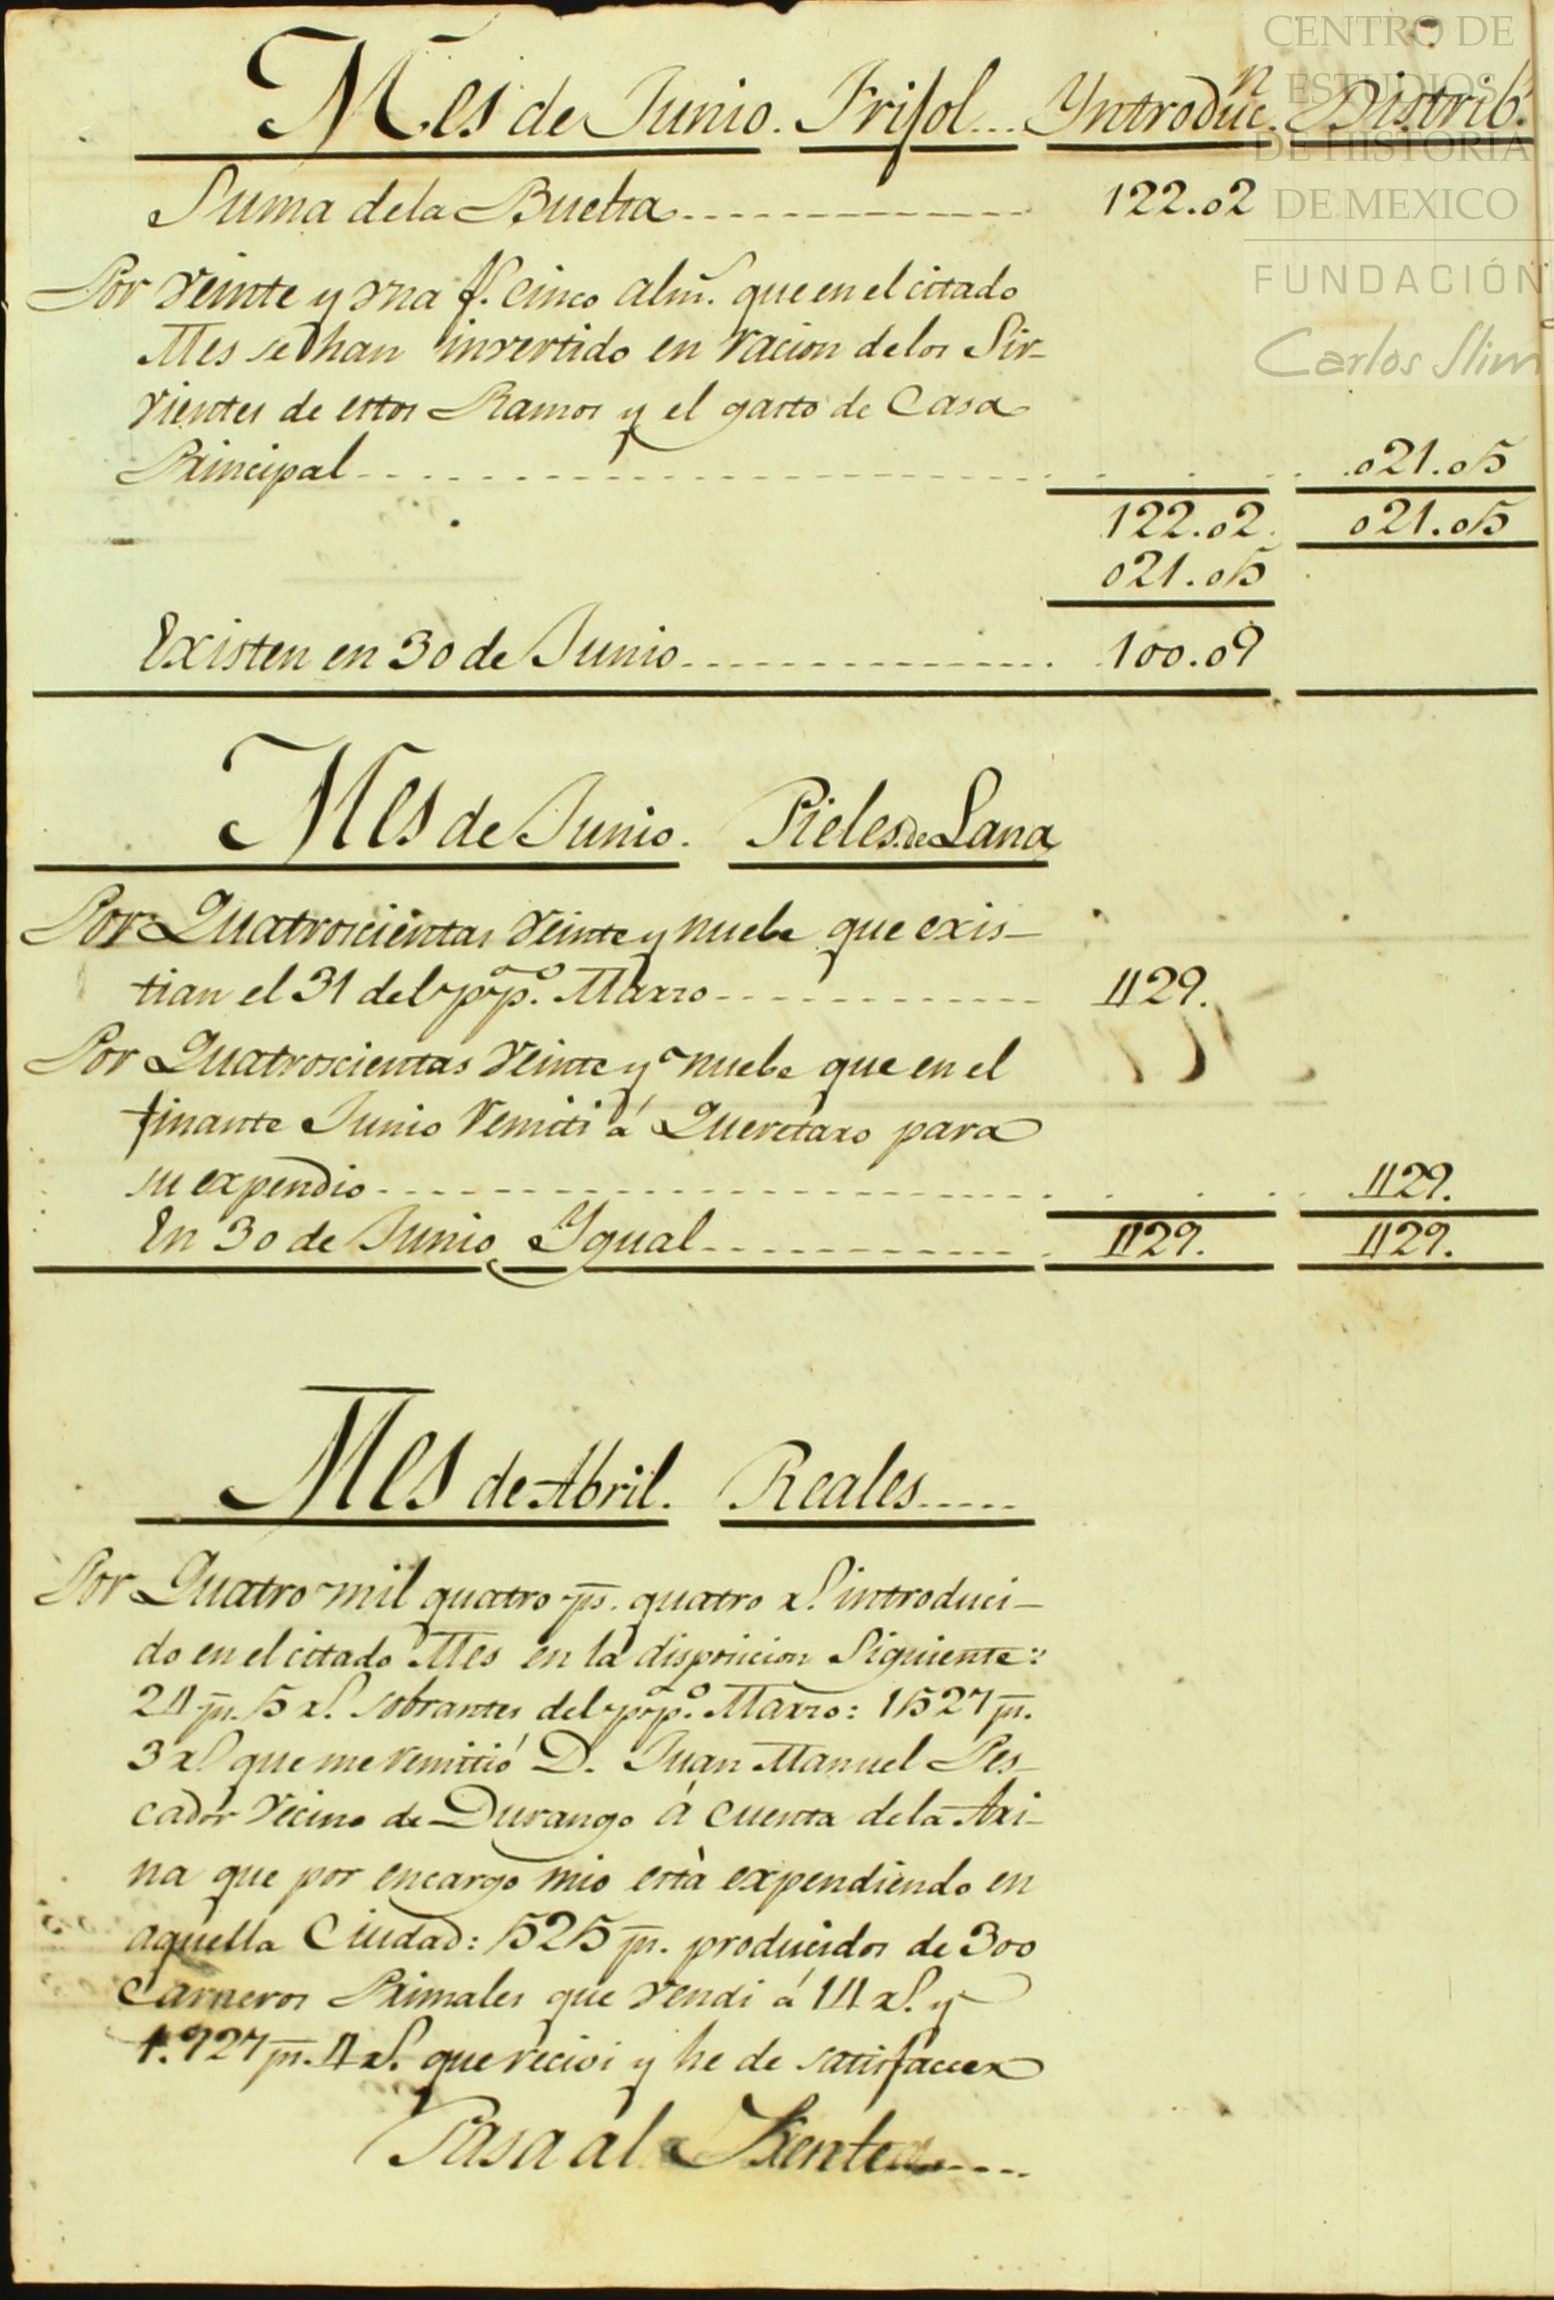 Mes de Junio. Frisol... Yntroduc.n Distrib.
CENTRO DE
ESTUDIOS
DE HISTORIA
DE MEXICO
FUNDACIÓN
Carlos Slim
Suma dela Buelta 122.02
Por veinte y una f. cinco alm.s que en el citado
Mes se han invertido en racion delos Sir-
vientes de estos Ramos y el gasto de Casa
Principal 021.05
122.02. 021.05
021.05
Existen en 30 de Junio 100.09
Mes de Junio. Pieles de Lana
Por Quatroscientas veinte y nuebe que exis-
tian el 31 del pp.o Marzo 429.
Por Quatroscientas veinte y nuebe que en el
finante Junio remiti á Queretaro para
su expendio 429.
En 30 de Junio Ygual 429. 429.
Mes de Abril. Reales.....
Por Quatro mil quatro ps. quatro r.s introduci-
do en el citado Mes en la disposicion Siguiente:
24 ps. 5 r.s sobrantes del pp.o Marzo: 1527 ps.
3 r.s que me remitió D. Juan Manuel Pes-
cador vecino de Durango á cuenta dela Axi-
na que por encargo mio está expendiendo en
aquella Ciudad: 525 ps. producidos de 300
Carneros Primales que vendi á 14 r.s y
1.927 ps. 4 r.s que recivi y he de satisfaccer
Pasa al Frente